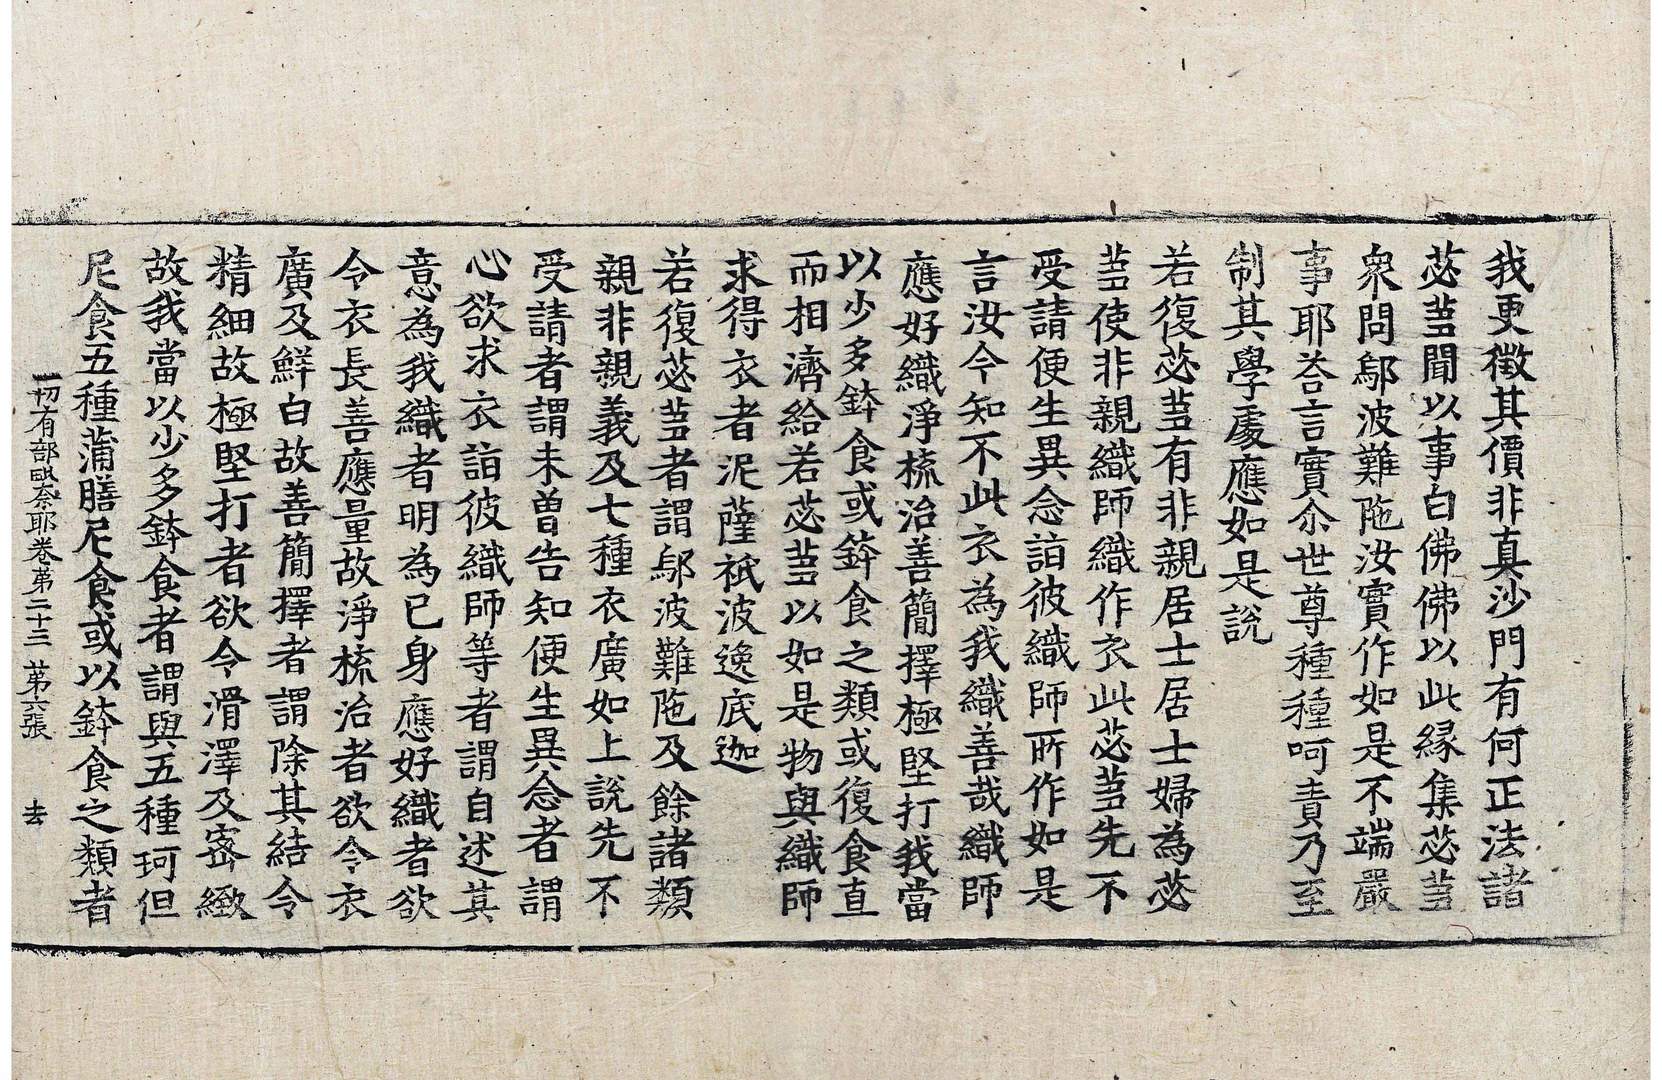 我更徵其價非真沙門有何正法諸
苾芻聞以事白佛佛以此縁集苾芻
衆問鄔波難陁汝實作如是不端嚴
事耶荅言實尒世尊種種呵責乃至
制其學處應如是說
若復苾芻有非親居士居士婦為苾
芻使非親織師織作衣此苾芻先不
受請便生異念詣彼織師所作如是
言汝今知不此衣為我織善哉織師
應好織淨梳治善簡擇極堅打我當
以少多鉢食或鉢食之類或復食直
而相濟給若苾芻以如是物與織師
求得衣者泥薩祇波逸底迦
若復苾芻者謂鄔波難陁及餘諸類
親非親義及七種衣廣如上說先不
受請者謂未曾告知便生異念者謂
心欲求衣詣彼織師等者謂自述其
意為我織者明為已身應好織者欲
令衣長善應量故淨梳治者欲令衣
廣及鮮白故善簡擇者謂除其結令
精細故極堅打者欲令滑澤及密緻
故我當以少多鉢食者謂與五種珂但
尼食五種蒲膳尼食或以鉢食之類者
一切有部毗奈耶卷第二十三 第六張 去